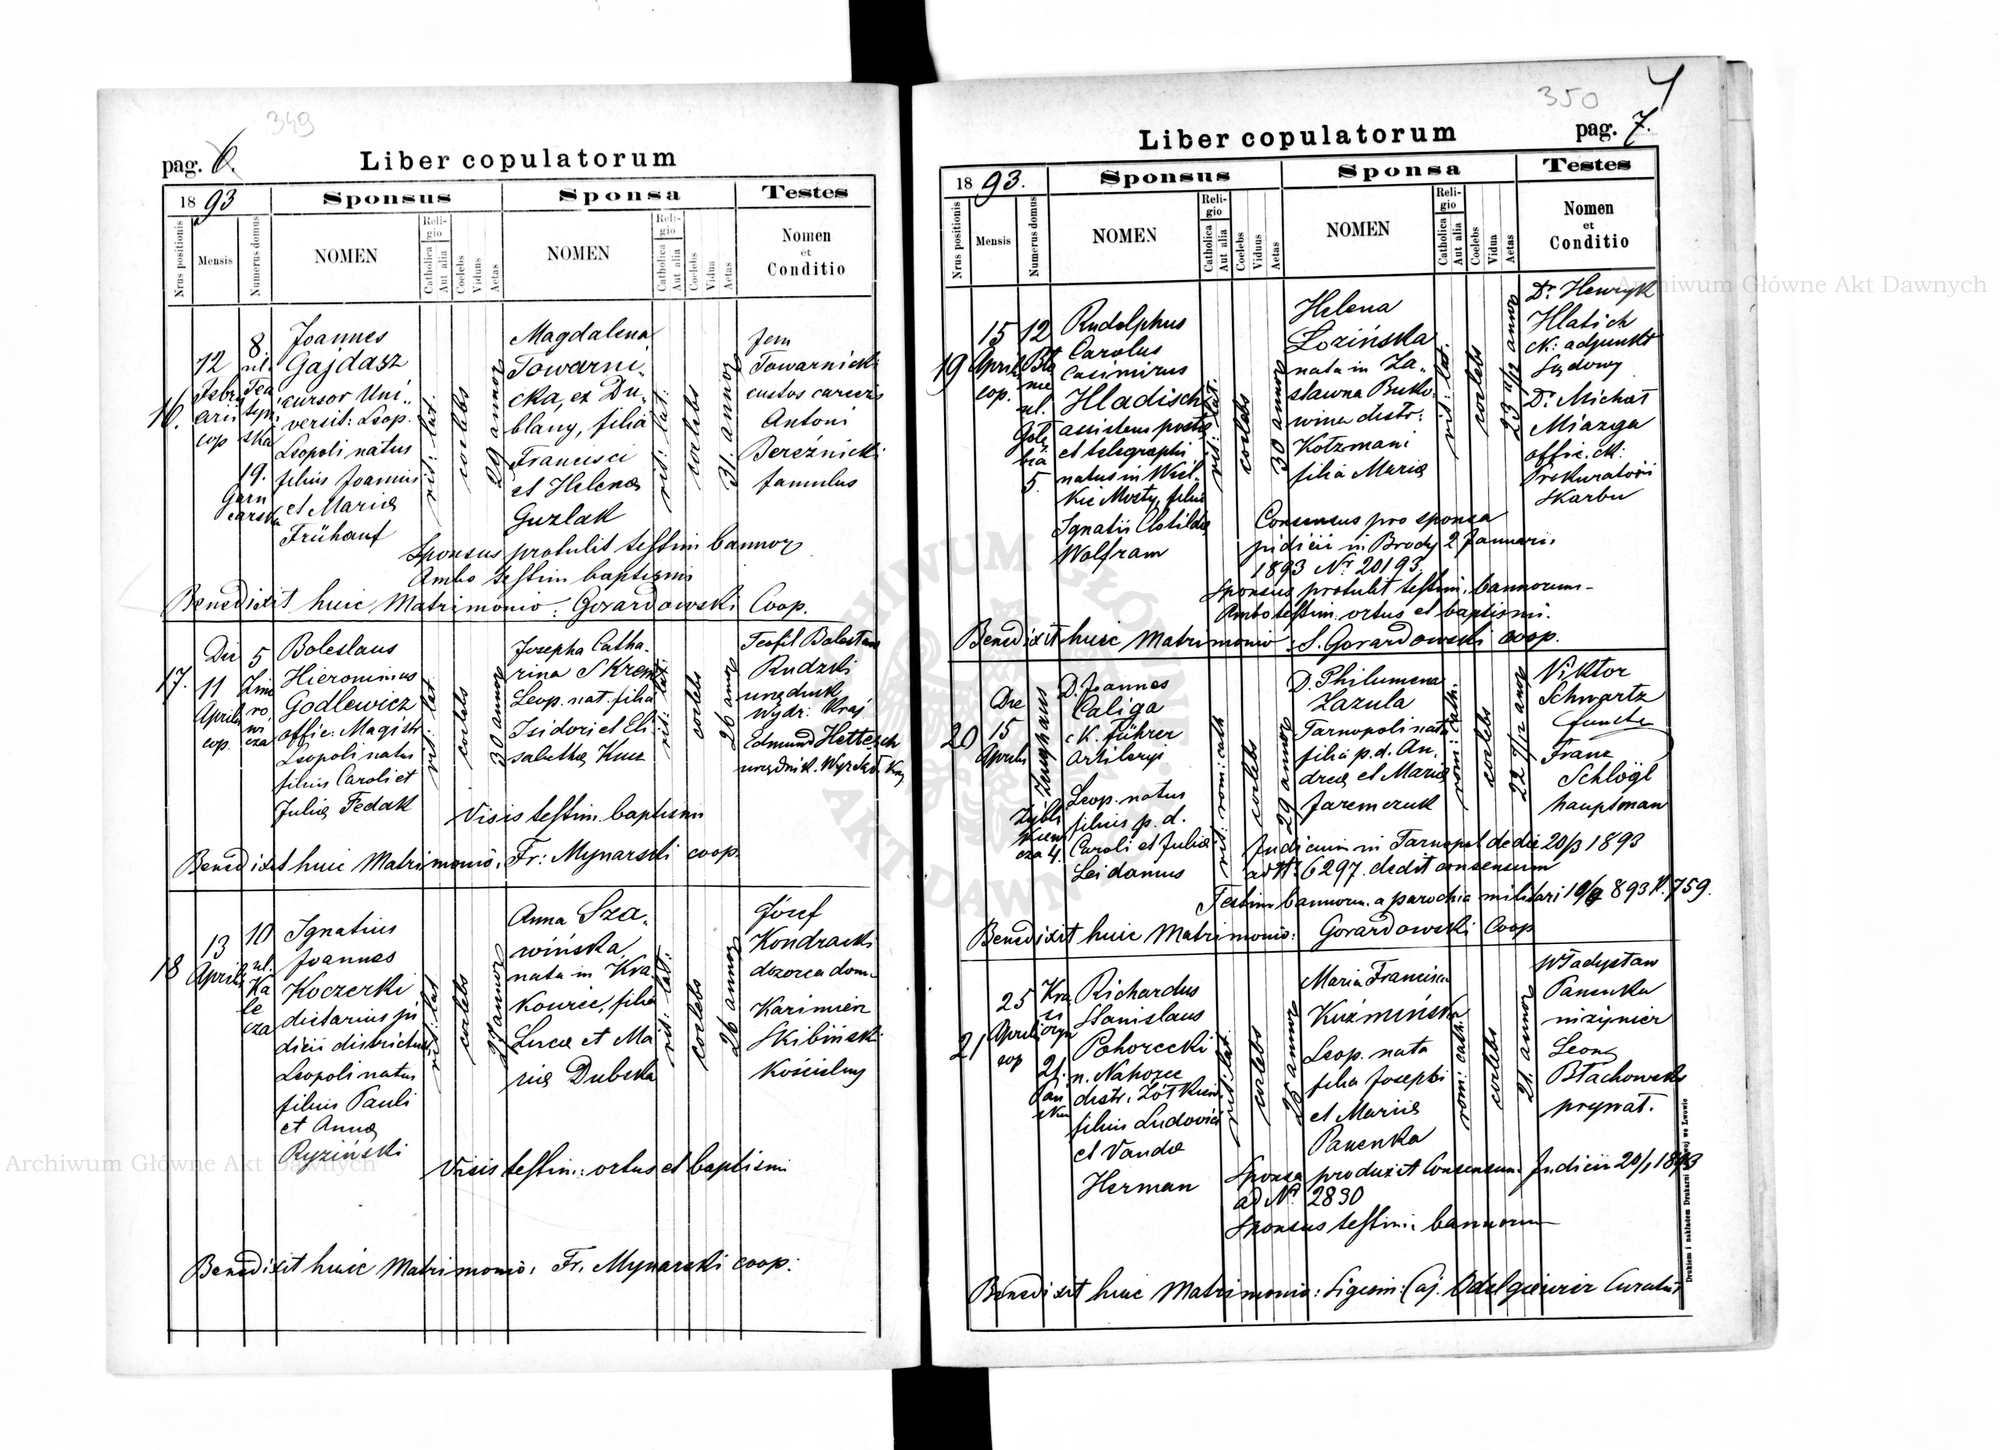 349
pag. 6.
Liber copulatorum
1893
Sponsus
Sponsa
Testes
Nrus positionis
Mensis
Numerus domus
NOMEN
Religio
Catholica
Aut alia
Coelebs
Viduus
Aetas
NOMEN
Religio
Catholica
Aut alia
Coelebs
Vidua
Aetas
Nomen
et
Conditio
16.
12
Febru
arii
cop
8.
ul.
19.
Garn
carska
Joannes
Gajdasz
cursor Uni-
versit: Leop.
Leopoli natus
filius Joannis
et Mariæ
Frühauf
rit: lat.
coelebs
29 annor
Magdalena
Towarni-
cka, ex Du-
blany, filia
Francisci
et Helenæ
Guzlak
rit: lat:
coelebs
31. annor
Jan
Towarnicki
custos carceris
Antoni
Bereźnicki
famulus
Sponsus protulit testim bannor
Ambo testim baptismi
Benedixit huic Matrimonio: Gorardowski Coop.
17.
Die
11
Aprilis
cop.
5
Zimo
ro
wi
cza
Boleslaus
Hieronimus
Godlewicz
offic: Magistr
Leopoli natus
filius Caroli et
Juliæ Fedak
rit: lat
coelebs
30 annor
Josepha Catha-
rina Skrem
Leop. nat. filia
Isidori et Eli
sabethæ Kucz
rit: lat:
coelebs
26 annor
Teofil Bolesław
Rudzki
urzędnik
Wydz: Kraj
Edmund Hettesch
urzędnik. Wydział. Kraj
Visis testim. baptismi
Benedixit huic Matrimonio: Fr: Mynarski coop.
18
13
Aprilis
10
ul.
Ka
le
cza
Ignatius
Joannes
Koczerki
dietarius ju
dicii districtus
Leopoli natus
filius Pauli
et Annæ
Ryziński
rit: lat
coelebs
27 annor
Anna Sza-
wińska,
nata in Kra
kowiec, filia
Lucæ et Ma
riæ Dubska
rit: lat:
coelebs
26 annor
Józef
Kondracki
dozorca dom.
Kazimierz
Skibiński
Kościelny
Visis testim: ortus et baptismi
Benedixit huic Matrimonio: Fr. Mynarski coop:
350
4
Liber copulatorum
pag. 7.
1893.
Sponsus
Sponsa
Testes
Nrus positionis
Mensis
Numerus domus
NOMEN
Religio
Catholica
Aut alia
Coelebs
Viduus
Aetas
NOMEN
Religio
Catholica
Aut alia
Coelebs
Vidua
Aetas
Nomen
et
Conditio
19
15
Aprilis
cop.
12
ul.
Gołę
bia
5.
Rudolphus
Carolus
Casimirus
Hladisch
assistens postæ
et telegraphi
natus in Wiel-
kie Mosty, filius
Ignatii Clotildæ
Wolfram
rit: lat.
coelebs
30 annor
Helena
Łozińska
nata in Za-
stawna Buko-
wina distr:
Kotzmani
filia Mariæ
rit: lat.
coelebs
23 11/12 annor
Dr. Henryk
Hlatich
ck: adjunkt
Sądowy
Dr. Michał
Miazga
offic. ck:
Prokuratorii
Skarbu
Consensus pro sponsa
judicii in Brody 2 Januarii
1893 Nr. 20193.
Sponsus protulit testim: bannorum
Ambo testim. ortus et baptismi.
Benedixit huic Matrimonio: S. Gorardowski coop.
20
Die
15
Aprilis
Zeughaus
Zybli
kiewi
cza 4.
D. Joannes
Caligo
ck. Führer
Artileryi
Leop. natus
filius p. d.
Caroli et Juliæ
Leidamus
rit: rom: cath
coelebs
29 annor
D. Philumena
Zazula
Tarnopoli nata
filia p. d. An-
dreæ et Mariæ
Jaremczuk
rom: cath.
coelebs
22 7/12 annor
Viktor
Schwartz
Franz
Schlögl
hauptman
Judicium in Tarnopol de die 20/3 1893
ad Nr. 6297. dedit consensum
Testim bannorum. a parochia militari 893 N. 759.
Benedixit huic Matrimonio: Gorardowski Coop
21
25
Aprilis
cop
Kra
si
czyn
21.
Pań
ska
Richardus
Stanislaus
Pohorecki
n. Nahorce
distr: Żółkiew
filius Ludovici
et Vandæ
Herman
rit: lat.
coelebs
25 annor
Maria Francisca
Kuźmińska
Leop. nata
filia Josephi
et Mariæ
Panenka
rom: cath:
coelebs
21. annor
Władysław
Panenka
inżynier
Leon
Błachowski
prywat.
Sponsa produxit Consensum Judicii 20/1 1893
ad Nr 2830
Sponsus testim: bannorum
Benedixit huic Matrimonio:
Drukiem i nakładem Drukarni Ludowej we Lwowie
Archiwum Główne Akt Dawnych
Archiwum Główne Akt Dawnych
ARCHIWUM GŁÓWNE
AKT DAWNYCH